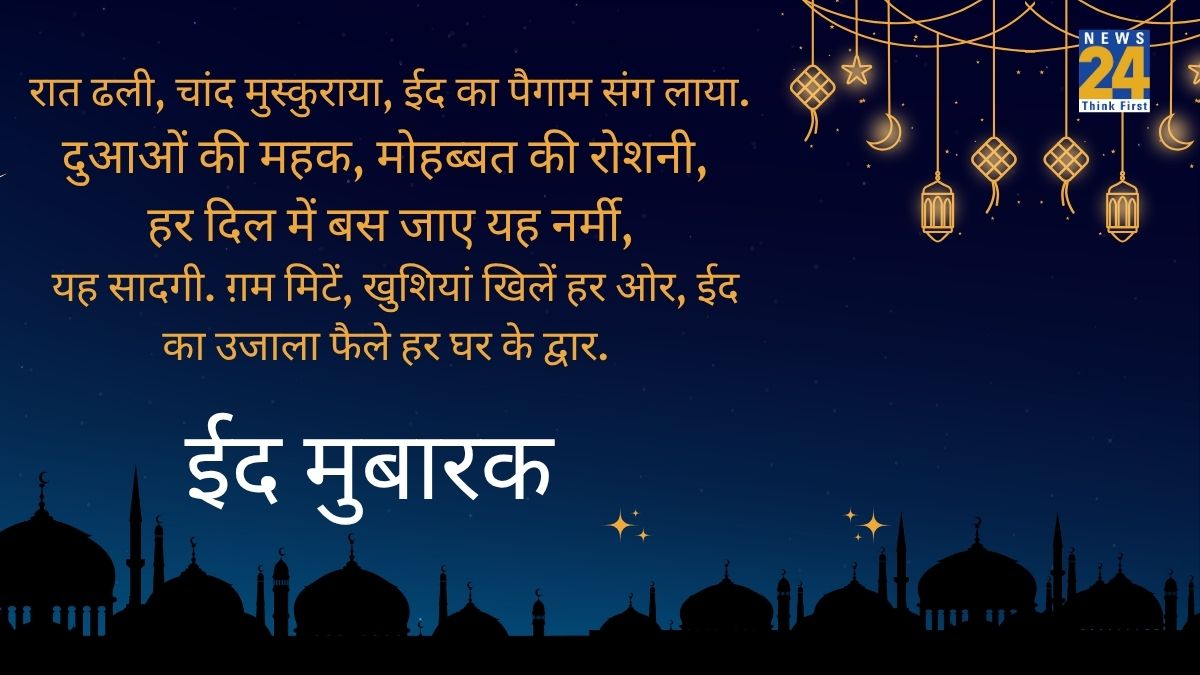 रात ढली, चांद मुस्कुराया, ईद का पैगाम संग लाया.
दुआओं की महक, मोहब्बत की रोशनी,
हर दिल में बस जाए यह नर्मी,
यह सादगी. ग़म मिटें, खुशियां खिलें हर ओर, ईद
का उजाला फैले हर घर के द्वार.
ईद मुबारक
NEWS
24
Think First